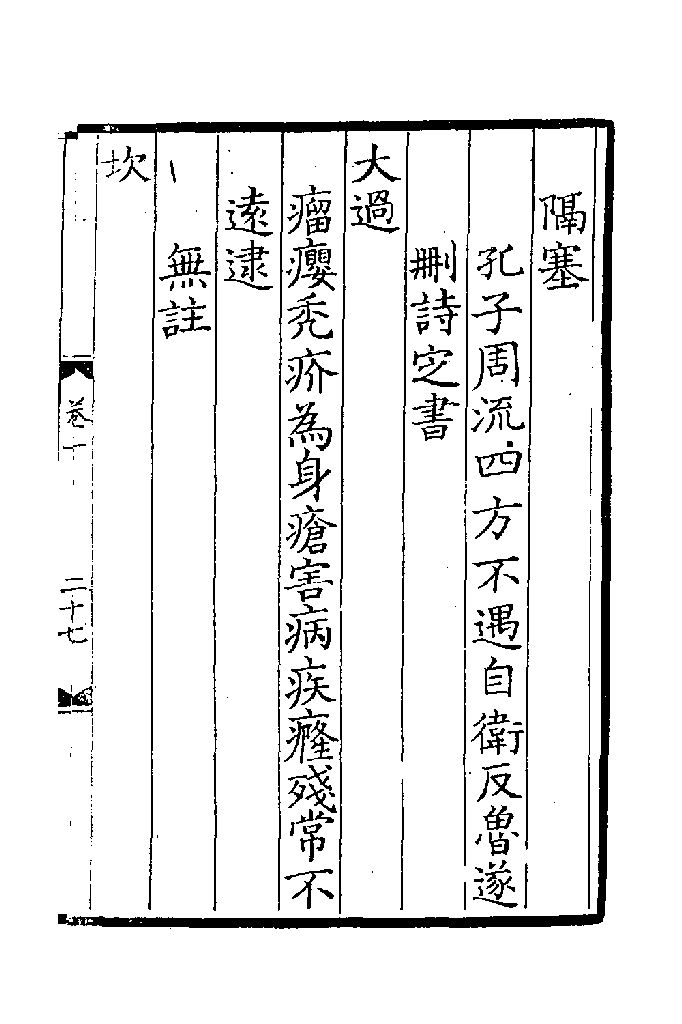 隔塞
孔子周流四方不遇自衛反魯遂
刪詩定書
大過
瘤癭禿疥為身瘡害病疾癃殘常不
逺逮
無註
坎
卷十
二十七